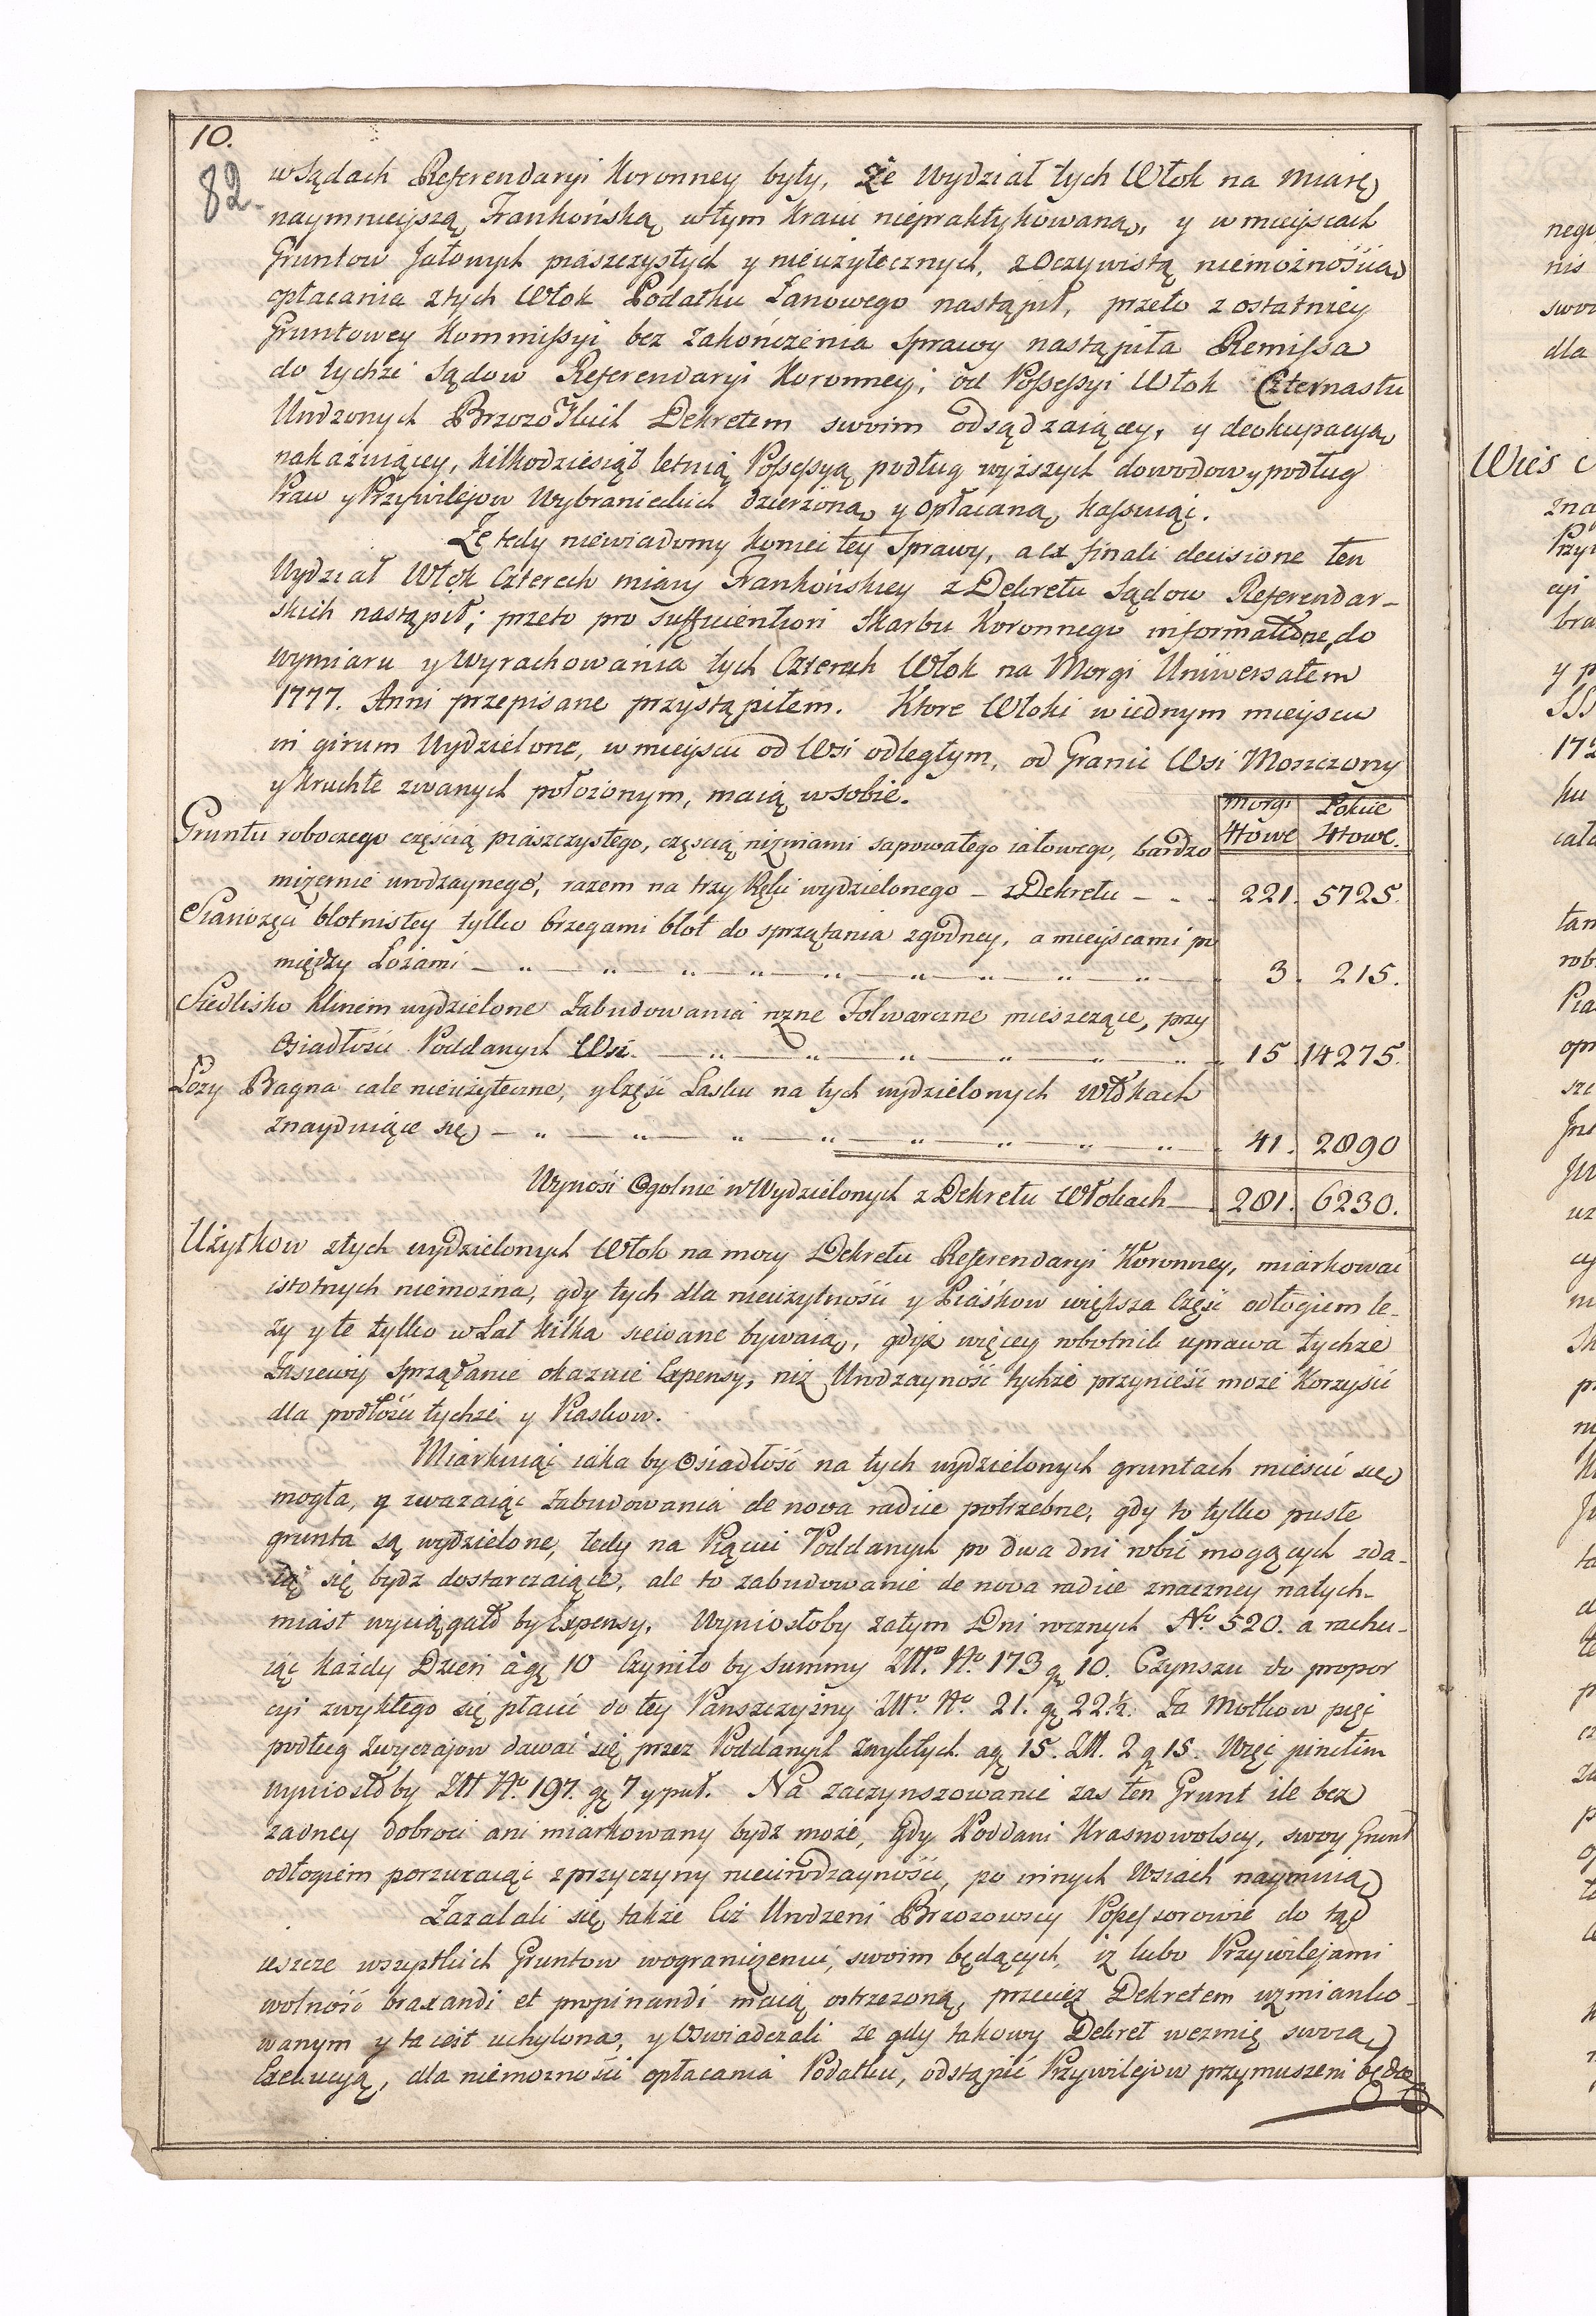 10.
82.
w Sądach Referendaryi Koronney były, że Wydział tych Włok na Miarę
naymnieyszą Frankońską w tym Kraiu niepraktykowaną, y w mieyscach
Gruntow Jałowych piaszczystych y nieużytecznych, z Oczywistą niemożnością
opłacania z tych Włok Podatku Łanowego nastąpił, przeto z ostatniey
Gruntowey Kommissyi bez Zakończenia Sprawy nastąpiła Remissa
do tychże Sądow Referendaryi Koronney, od Possessyi Włok Czternastu
Urodzonych Brzozowskich Dekretem swoim odsądzaiącey, y deokupacyą
nakazuiącey, kilkodziesiąt letnią Possessyą podług wyższych dowodow y podług
Praw y Przywilejow Wybranieckich dzierżoną y opłacaną, kassuiąc.
Że tedy niewiadomy koniec tey Sprawy, a ex finali decisione ten
Wydział Włok Czterech miary Frankońskiey z Dekretu Sądow Referendar-
skich nastąpił; przeto pro sufficientiori Skarbu Koronnego informatione, do
wymiaru y Wyrachowania tych Czterech Włok na Morgi Uniwersałem
1777. Anni przepisane przystąpiłem. Ktore Włoki w iednym mieyscu
in girum Wydzielone, w mieyscu od Wsi odległym, od Granic Wsi Moszczony
y Kruchłe zwanych położonym, maią w sobie.
Morgi Łokcie
4towe 4towe.
Gruntu roboczego częścią piaszczystego, częscią niziniami sapowatego iałowego, bardzo
mizernie urodzaynego, razem na trzy Ręki wydzielonego – z Dekretu – „ . 221. 5725.
Sianożęci błotnistey tylko brzegami błot do sprzątania zgodney, a mieyscami po
między Łozami – „ – „ – „ – „ – „ – „ – „ – „ – „ – . 3. 215.
Siedlisko klinem wydzielone Zabudowania rożne Folwarczne mieszczące, przy
Osiadłości Poddanych Wsi. – „ – „ – „ – „ – „ – „ . 15. 14275.
Łozy Bagna cale nieużyteczne, y Częśc Lasku na tych wydzielonych Włokach
znayduiące się – „ – „ – „ – „ – „ – „ – „ – „ . 41. 2890
Wynosi Ogolnie w Wydzielonych z Dekretu Włokach – . 281. 6230.
Użytkow z tych wydzielonych Włok na mocy Dekretu Referendaryi Koronney, miarkowac
istotnych niemożna, gdy tych dla nieużytności y Piaśkow większa Częśc odłogiem le-
ży y te tylko w Lat kilka siewane bywaią, gdyż więcey robotnik uprawa tychże
Zasiewy sprzątanie okazuie Expensy, niż Urodzayność tychże przynieść może Korzyści
dla podłości tychże y Piaskow.
Miarkuiąc iaka by Osiadłość na tych wydzielonych gruntach mieścić się
mogła, y zważaiąc Zabudowania de nova radice potrzebne, gdy to tylko puste
grunta są wydzielone, tedy na Pięciu Poddanych po dwa dni robić mogących zda-
ią się bydz dostarczaiące, ale to zabudowanie de nova radice znaczney natych-
miast wyciągało by Expensy. Wyniosłoby zatym Dni rocznych No. 520. a rachu-
iąc każdy Dzień a gr 10 Czyniło by summy Złł. No. 173 gr 10. Czynszu do propor
cyi zwykłego się płacić do tey Panszczyzny Złł. No. 21. gr 22½. Za Motkow pięc
podług Zwyczajow dawać się przez Poddanych zwykłych a gr 15. Złł. 2 gr 15. Więc pinctim
wyniosłoby Złł No. 197. gr 7 y puł. Na zaczynszowanie zaś ten Grunt ile bez
żadney dobroci ani miarkowany bydz może, Gdy Poddani Krasnowolscy, swoy Grunt
odłogiem porzucaiąc z przyczyny nieurodzayności, po innych Wsiach naymuią
Zażalali się także Ciż Urodzeni Brzozowscy Possessorowie do tąd
ieszcze wszystkich Gruntow w ograniczeniu swoim będących, iż lubo Przywilejami
wolność braxandi et propinandi maią ostrzeżoną, przecież Dekretem wzmianko-
wanym y ta iest uchylona, y Oświadczali że gdy takowy Dekret weźmie swoią
Exekucyą, dla niemożności opłacania Podatku, odstąpić Przywilejow przymuszeni będą